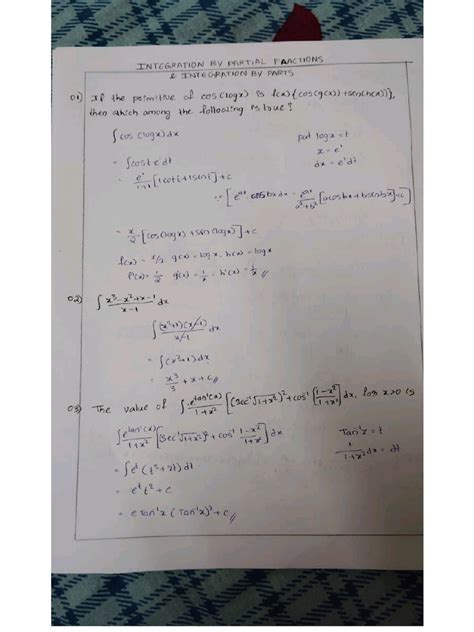 INTEGRATION BY PARTIAL FRACTIONS
& INTEGRATION BY PARTS
01) If the primitive of cos(logx) is f(x){cos(g(x))+sin(h(x))},
then which among the following is true?
∫cos(logx)dx put logx=t
= ∫cost·eᵗdt x = eᵗ
dx = eᵗdt
= eᵗ/1+1 [1cost+1sint]+c
∵ [eᵃˣ cosbxdx = eᵃˣ/a²+b² [acosbx+bsinbx]+c]
= x/2 [cos(logx)+sin(logx)]+c
f(x) = x/2, g(x)=logx, h(x)=logx
f'(x)= 1/2 g'(x)= 1/x, h'(x)= 1/x //
02) ∫ x³-x²+x-1/x-1 dx
∫ (x²+1)(x-1)/x-1 dx
= ∫(x²+1)dx
= x³/3 + x + c //
03) The value of ∫ e^tan⁻¹(x)/1+x² [(Sec⁻¹√1+x²)²+cos⁻¹[1-x²/1+x²]dx, for x>0 is
∫ e^tan⁻¹(x)/1+x² [(Sec⁻¹√1+x²)²+cos⁻¹[1-x²/1+x²]dx Tan⁻¹x = t
1/1+x² dx = dt
= ∫eᵗ(t²+2t)dt
= eᵗt²+c
= eTan⁻¹x (Tan⁻¹x)²+c //